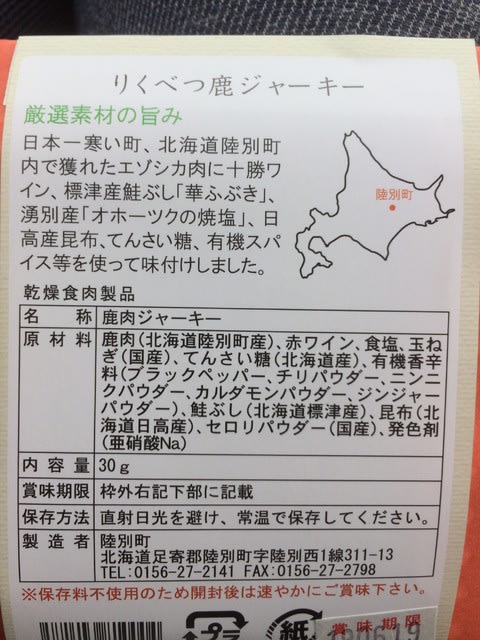 りくべつ鹿ジャーキー
厳選素材の旨み
日本一寒い町、北海道陸別町
内で獲れたエゾシカ肉に十勝ワ
イン、標津産鮭ぶし「華ふぶき」、
湧別産「オホーツクの焼塩」、日
高産昆布、てんさい糖、有機スパ
イス等を使って味付けしました。
陸別町
乾燥食肉製品
名 称 鹿肉ジャーキー
原 材 料 鹿肉(北海道陸別町産)、赤ワイン、食塩、玉ね
ぎ(国産)、てんさい糖(北海道産)、有機香辛
料(ブラックペッパー、チリパウダー、ニンニ
クパウダー、カルダモンパウダー、ジンジャー
パウダー)、鮭ぶし(北海道標津産)、昆布(北
海道日高産)、セロリパウダー(国産)、発色剤
(亜硝酸Na)
内 容 量 30g
賞味期限 枠外右記下部に記載
保存方法 直射日光を避け、常温で保存してください。
製 造 者 陸別町
北海道足寄郡陸別町字陸別西1線311-13
TEL:0156-27-2141 FAX:0156-27-2798
※保存料不使用のため開封後は速やかにご賞味下さい。
プラ
紙
賞味期限